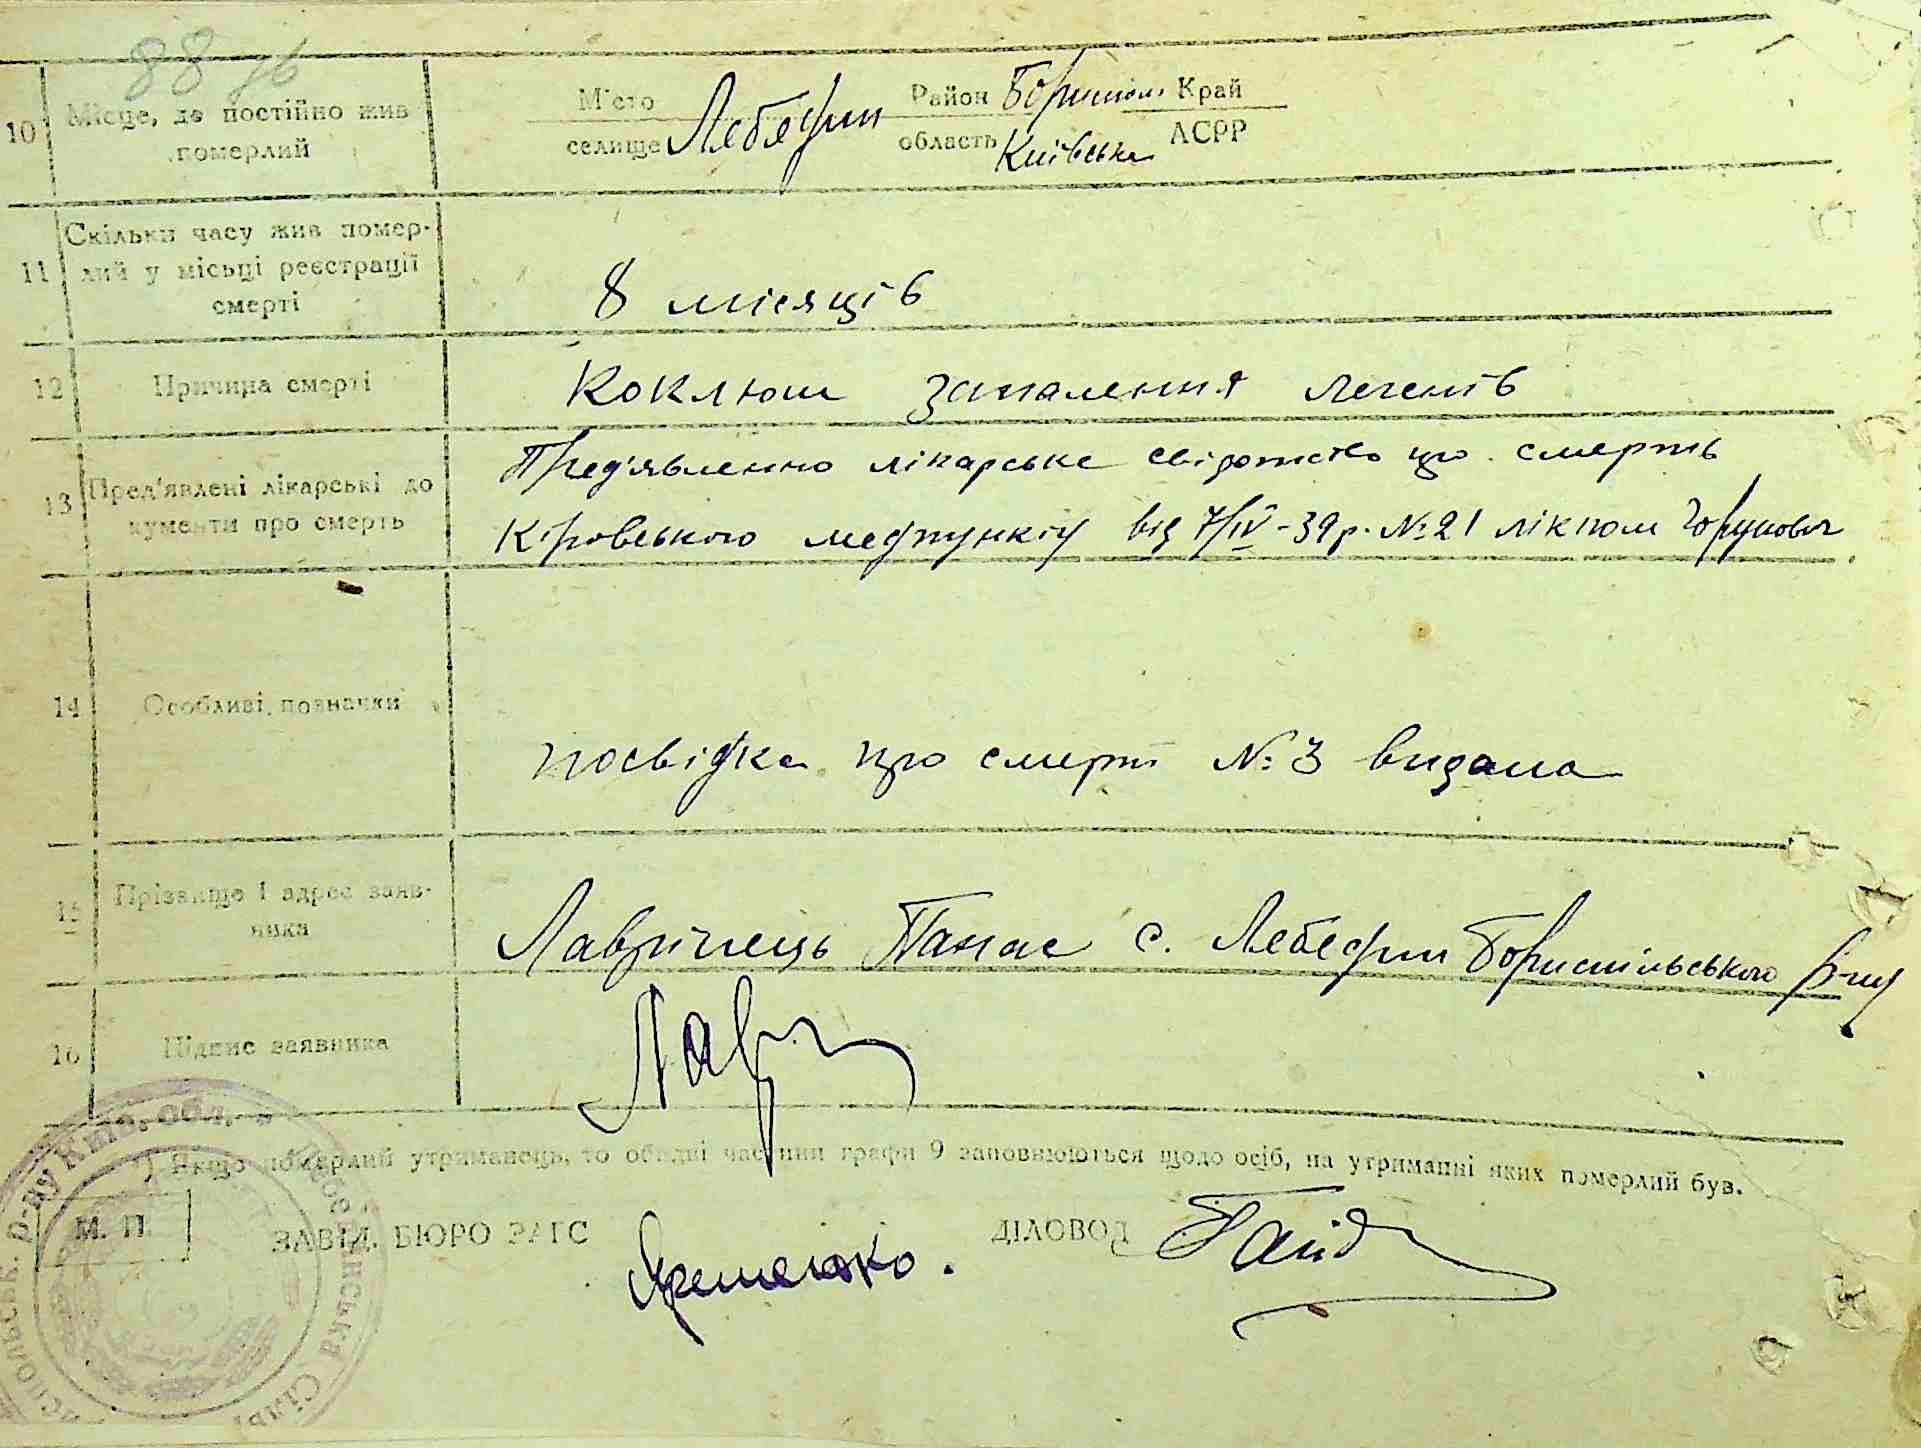 88 76
10 Місце, де постійно жив померлий
Місто селище Лебедин Район Бориспол. область Київська Край АСРР
11 Скільки часу жив померлий у місьці реєстрації смерті
8 місяців
12 Причина смерті
Коклюш запалення легенів
13 Пред'явлені лікарські документи про смерть
Пред'явленно лікарське свідотство про смерть
Кіровського медпункту від 7/IV-39р. №21 лікпом
14 Особливі позначки
посвідка про смерть №3 видана
15 Прізвище і адрес заявника
Лаврінець Панас с. Лебедин Бориспільського р-ну
16 Підпис заявника
Лавр
1) Якщо померлий утриманець, то обидві частини графи 9 заповнюються щодо осіб, на утриманні яких померлий був.
М. П.
ЗАВІД. БЮРО ЗАГС
ДІЛОВОД Гайд
р-ну Київ. обл.